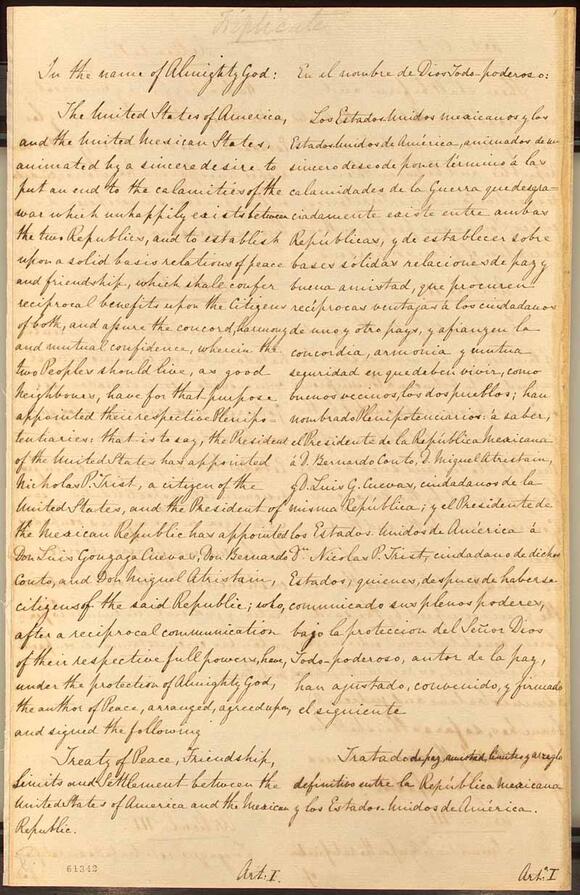 Triplicate
In the name of Almighty God:
The United States of America,
and the United Mexican States,
animated by a sincere desire to
put an end to the calamities of the
war which unhappily exists between
the two Republics, and to establish
upon a solid basis relations of peace
and friendship, which shall confer
reciprocal benefits upon the Citizens
of both, and assure the concord, harmony
and mutual confidence, wherein the
two Peoples should live, as good
Neighbours, have for that purpose
appointed their respective Plenipo
tentiaries: that is to say, the President
of the United States has appointed
Nicholas P. Trist, a citizen of the
United States, and the President of
the Mexican Republic has appointed
Don Luis Gonzaga Cuevas, Don Bernardo
Couto, and Don Miguel Atristain,
citizens of the said Republic; who,
after a reciprocal communication
of their respective full powers, have,
under the protection of Almighty God,
the author of Peace, arranged, agreed upon,
and signed the following
Treaty of Peace, Friendship,
Limits and Settlement between the
United States of America and the Mexican
Republic.
61342
Art. I.
En el nombre de Dios Todo-poderoso:
Los Estados Unidos mexicanos y los
Estados Unidos de América, animados de un
sincero deseo de poner término á las
calamidades de la Guerra que desgra-
ciadamente existe entre ambas
Repúblicas, y de establecer sobre
bases sólidas relaciones de paz y
buena amistad, que procuren
recíprocas ventajas á los ciudadanos
de uno y otro pays, y afianzen la
concordia, armonía y mutua
seguridad en que deben vivir, como
buenos vecinos, los dos pueblos; han
nombrado Plenipotenciarios: á saber,
el Presidente de la República Mexicana
á D. Bernardo Couto, D. Miguel Atristain,
y D. Luis G. Cuevas, ciudadanos de la
misma República; y el Presidente de
los Estados-Unidos de América á
Dn. Nicolas P. Trist, ciudadano de dichos
Estados; quienes, despues de haberse
comunicado sus plenos poderes,
bajo la proteccion del Señor Dios
Todo-poderoso, autor de la paz,
han ajustado, convenido, y firmado
el siguiente
Tratado de paz, amistad, límites y arreglo
definitivo entre la República Mexicana
y los Estados-Unidos de América.
Art.º I